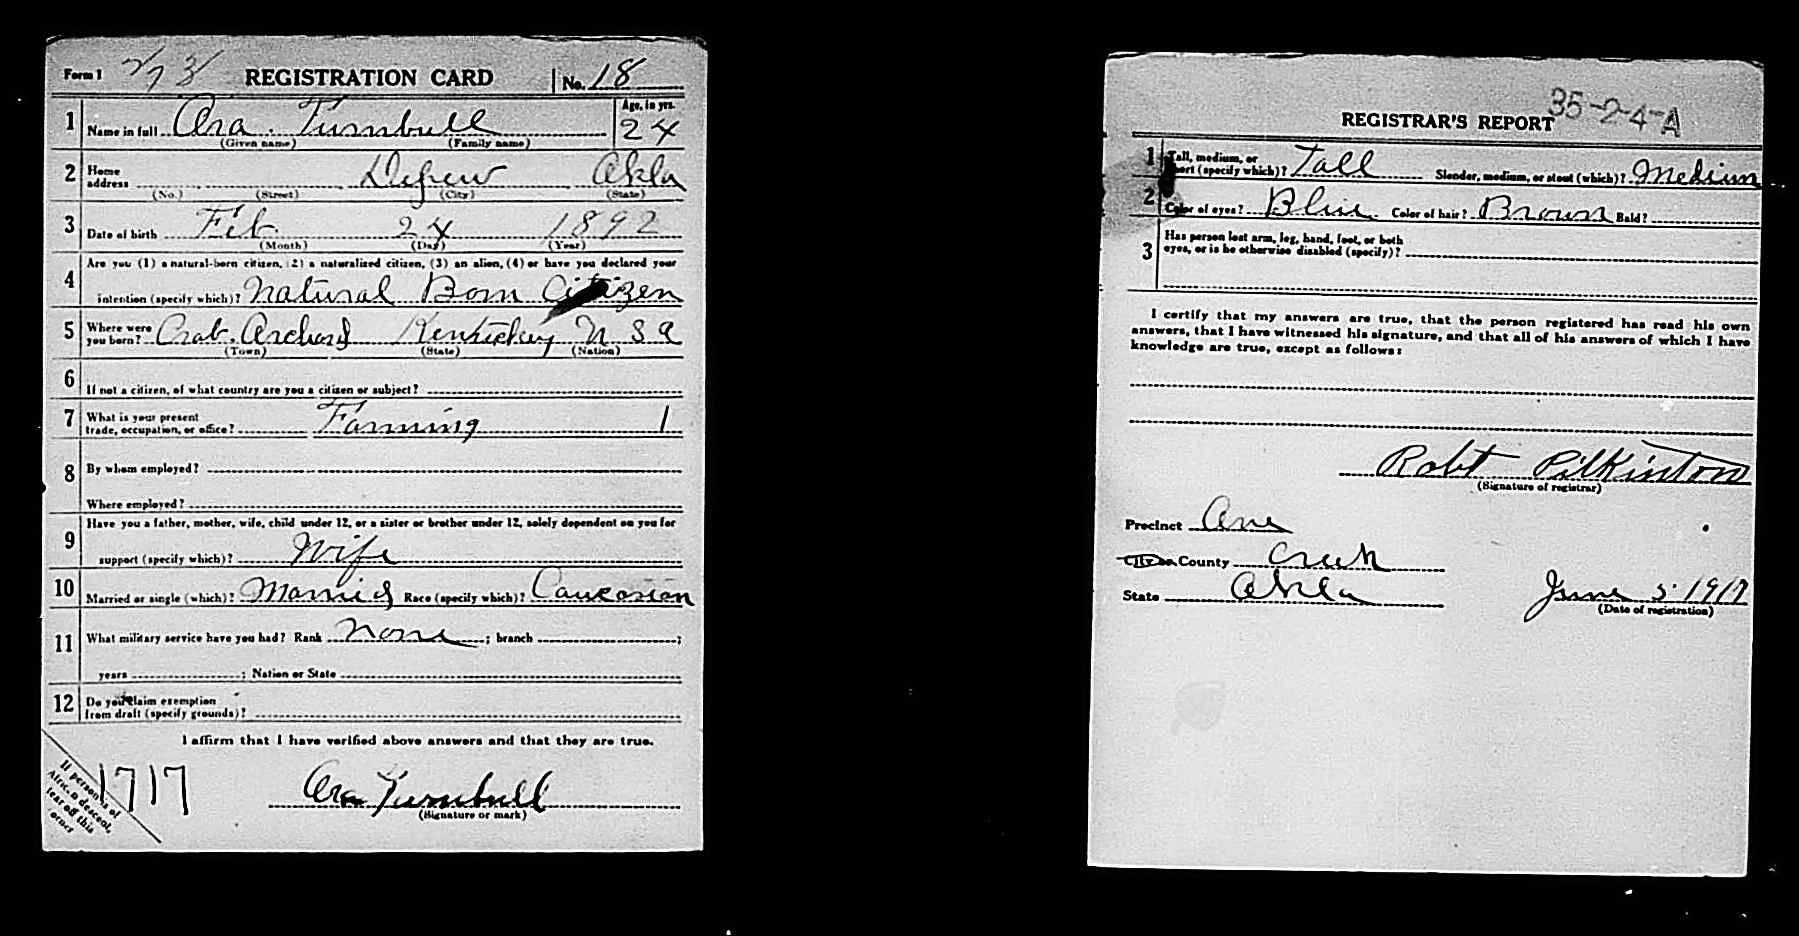 Form 1 REGISTRATION CARD No. 18
1 Name in full Ora. Turnbull Age, in yrs. 24
(Given name) (Family name)
2 Home address Depew Okla
(No.) (Street) (City) (State)
3 Date of birth Feb 24 1892
(Month) (Day) (Year)
4 Are you (1) a natural-born citizen, (2) a naturalized citizen, (3) an alien, (4) or have you declared your
intention (specify which)? Natural Born Citizen
5 Where were you born? Crab. Orchard Kentuckey U S A
(Town) (State) (Nation)
6 If not a citizen, of what country are you a citizen or subject?
7 What is your present
trade, occupation, or office? Farming 1
8 By whom employed?
Where employed?
9 Have you a father, mother, wife, child under 12, or a sister or brother under 12, solely dependent on you for
support (specify which)? Wife
10 Married or single (which)? Married Race (specify which)? Caucasian
11 What military service have you had? Rank None ; branch ;
years ; Nation or State
12 Do you claim exemption
from draft (specify grounds)?
I affirm that I have verified above answers and that they are true.
1717
Ora Turnbull
(Signature or mark)
If person is of
African descent,
tear off this
corner
35-2-4-A
REGISTRAR'S REPORT
1 Tall, medium, or
short (specify which)? Tall Slender, medium, or stout (which)? Medium
2 Color of eyes? Blue Color of hair? Brown Bald?
3 Has person lost arm, leg, hand, foot, or both
eyes, or is he otherwise disabled (specify)?
I certify that my answers are true, that the person registered has read his own
answers, that I have witnessed his signature, and that all of his answers of which I have
knowledge are true, except as follows:
Robt Pilkinton
(Signature of registrar)
Precinct One
City or County Creek
State Okla June 5 1917
(Date of registration)